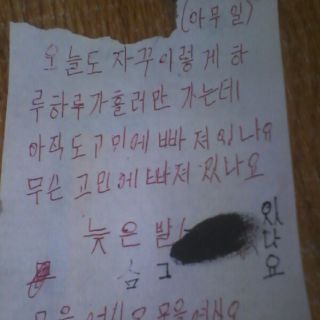 (아무 일)
오늘도 자꾸이렇게 하
루하루가흘러만 가는데
아직도고민에 빠져있나요
무슨 고민에빠져 있나요
늦은 밤
있나요
숨 그